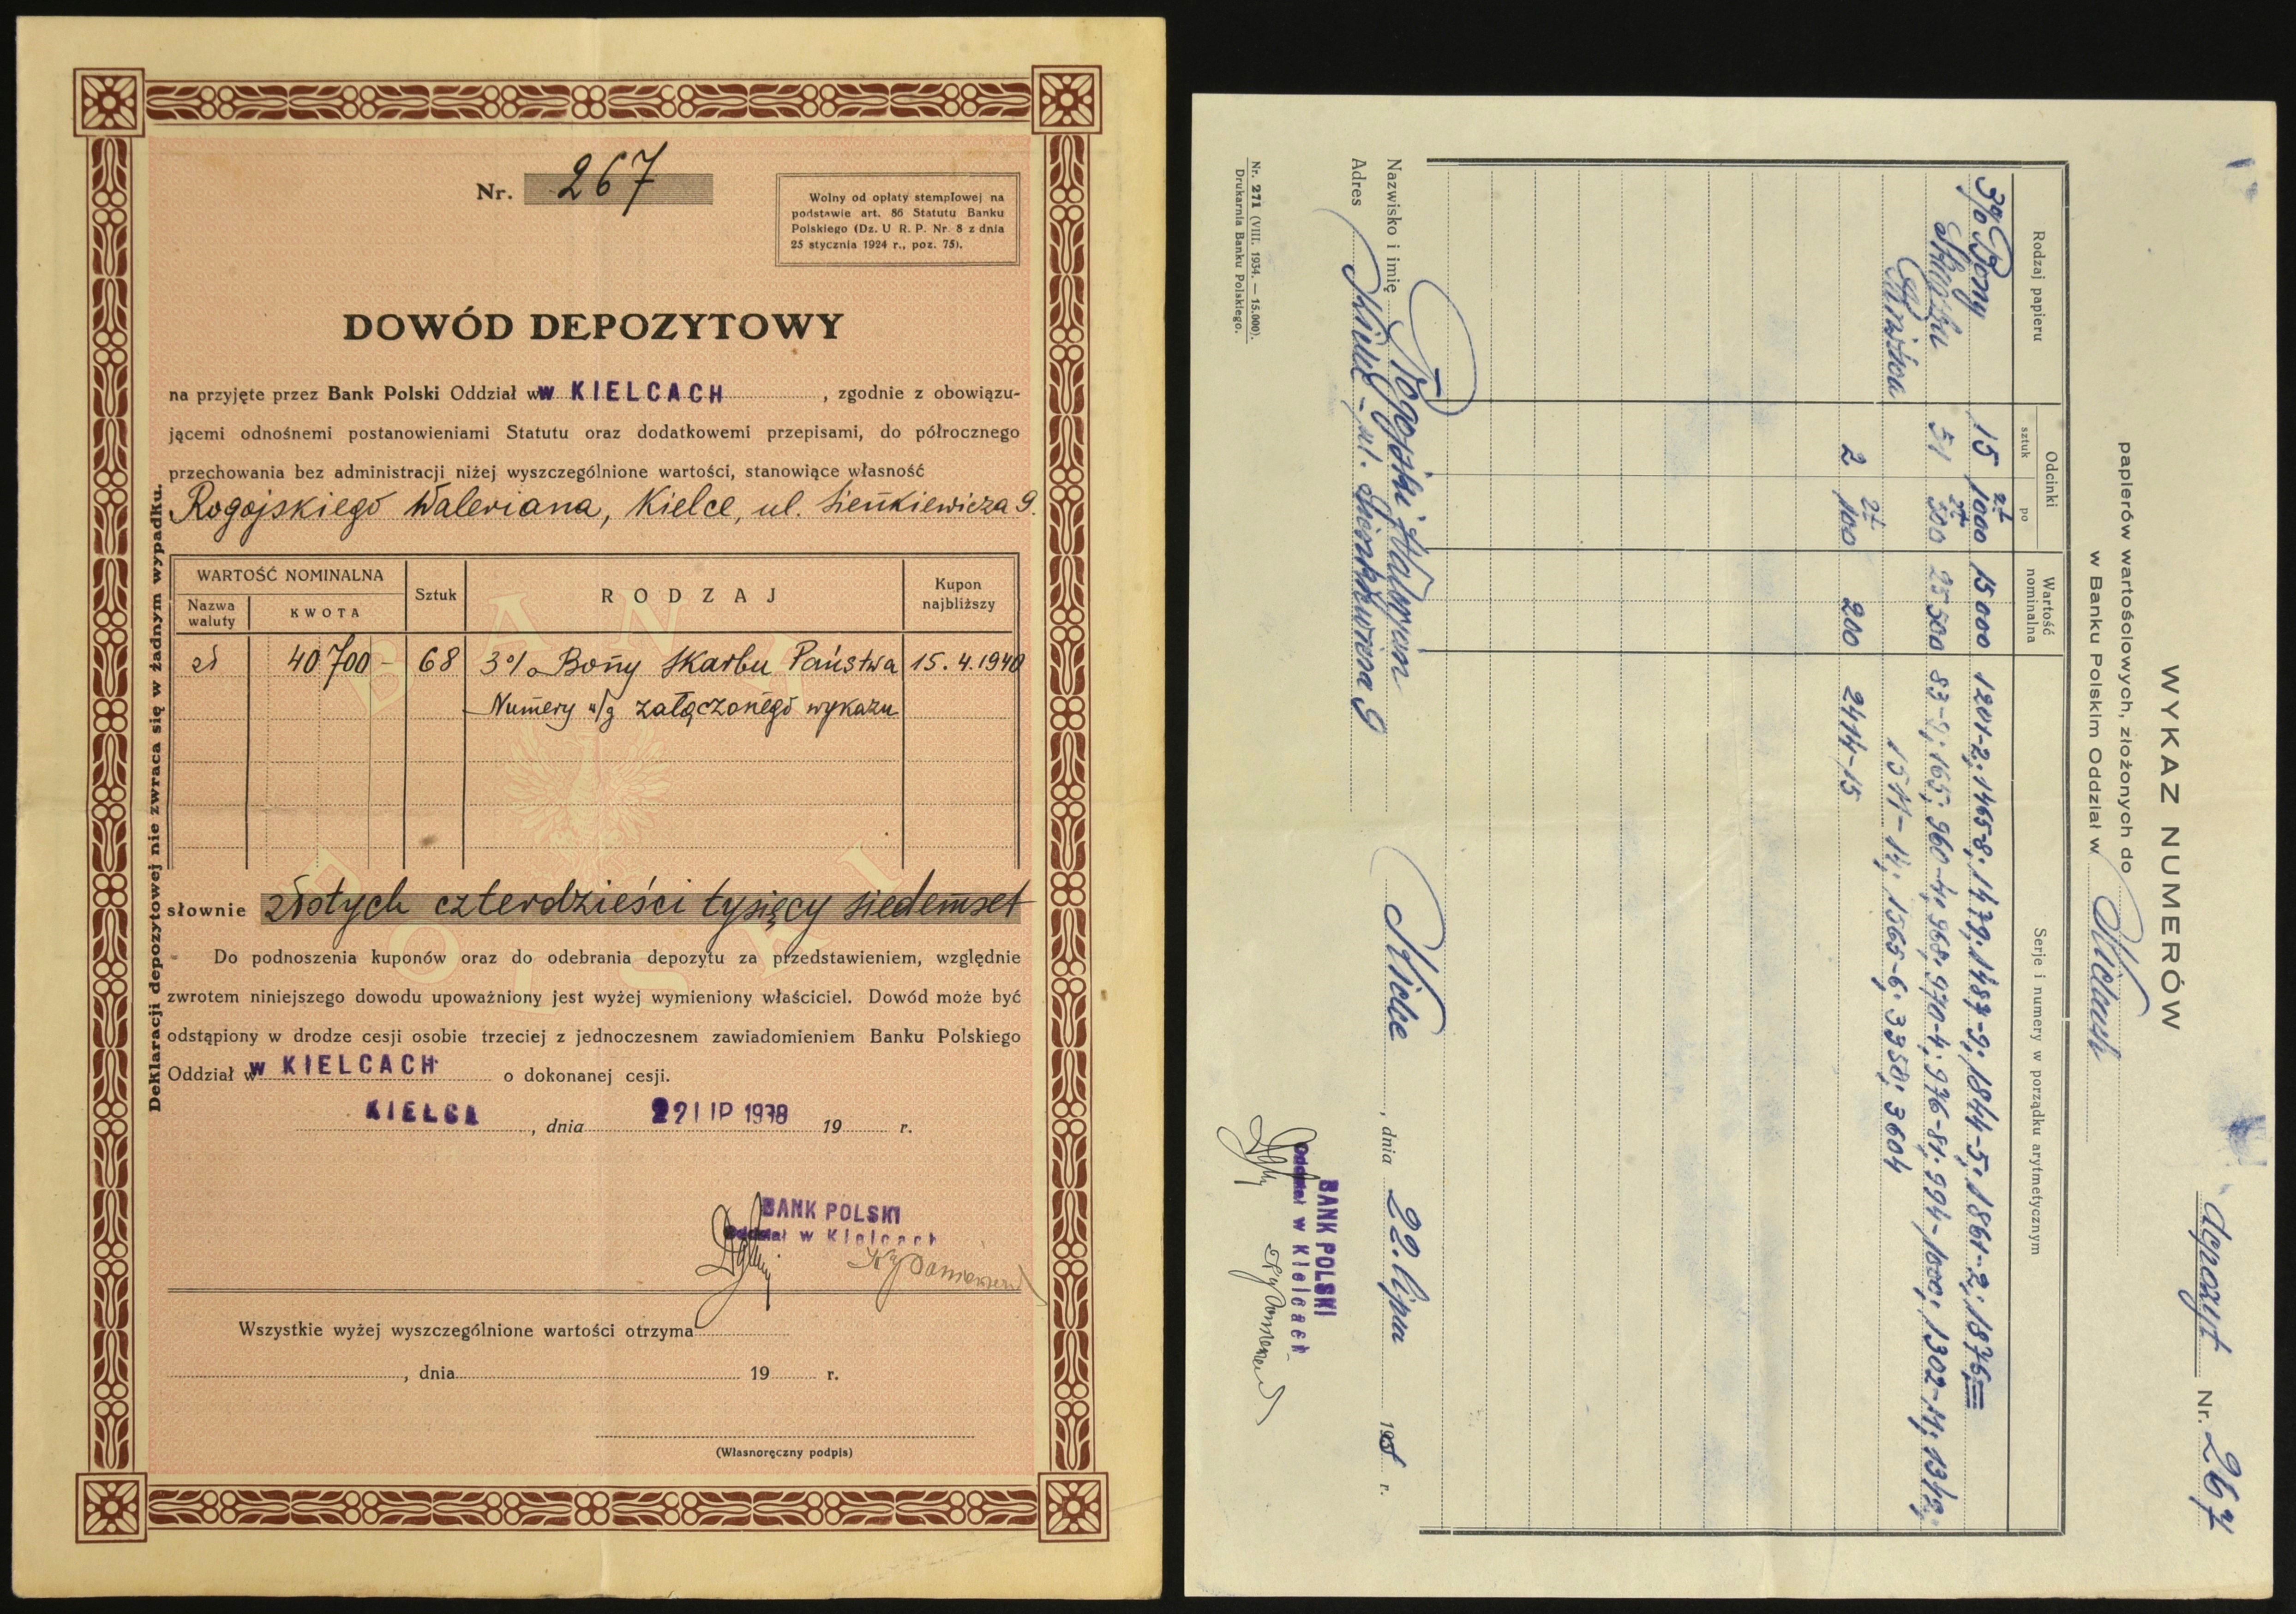 Nr. 267
Wolny od opłaty stemplowej na
podstawie art. 86 Statutu Banku
Polskiego (Dz. U R. P. Nr. 8 z dnia
25 stycznia 1924 r., poz. 75).
DOWÓD DEPOZYTOWY
na przyjęte przez Bank Polski Oddział w w KIELCACH , zgodnie z obowiązu-
jącemi odnośnemi postanowieniami Statutu oraz dodatkowemi przepisami, do półrocznego
przechowania bez administracji niżej wyszczególnione wartości, stanowiące własność
Rogojskiego Waleriana, Kielce, ul. Sienkiewicza 9.
WARTOŚĆ NOMINALNA
Nazwa waluty
KWOTA
Sztuk
RODZAJ
Kupon najbliższy
zł 40 700 - 68 3% Bony Skarbu Państwa 15. 4. 1940
Numery w/g załączonego wykazu
BANK POLSKI
słownie złotych czterdzieści tysięcy siedemset
Do podnoszenia kuponów oraz do odebrania depozytu za przedstawieniem, względnie
zwrotem niniejszego dowodu upoważniony jest wyżej wymieniony właściciel. Dowód może być
odstąpiony w drodze cesji osobie trzeciej z jednoczesnem zawiadomieniem Banku Polskiego
Oddział w w KIELCACH o dokonanej cesji.
KIELCE , dnia 22 LIP 1938 19 r.
BANK POLSKI
Oddział w Kielcach
Wszystkie wyżej wyszczególnione wartości otrzyma
, dnia 19 r.
(Własnoręczny podpis)
Deklaracji depozytowej nie zwraca się w żadnym wypadku.
depozyt Nr. 267
WYKAZ NUMERÓW
papierów wartościowych, złożonych do
w Banku Polskim Oddział w Kielcach
Rodzaj papieru
Odcinki
sztuk
po
Wartość nominalna
Serje i numery w porządku arytmetycznym
3% Bony 15 zł 1000 15 000 1201-2; 1465-8; 1479; 1487-9; 1844-5; 1861-2; 1876
Skarbu 51 zł 500 25 500 83-9; 165; 960-4; 968; 970-4; 976-81; 994-1000; 1302-14; 1342;
Państwa 1511-14; 1565-6; 3350; 3604
2 zł 100 200 2414-15
Nazwisko i imię Rogojski Walerian
Adres Kielce - ul. Sienkiewicza 9
Kielce , dnia 22. lipca 1938 r.
BANK POLSKI
Oddział w Kielcach
Nr. 271 (VIII. 1934. — 15.000).
Drukarnia Banku Polskiego.